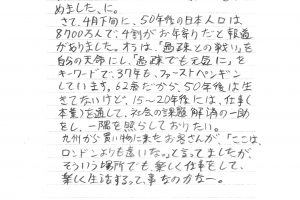 めました、に。
さて、4月下旬に、50年後の日本人口は
8700万人で、4割がお年寄りだと報道
がありました。オラは、「過疎との戦い」を
自分の天命にし、「過疎でも元気に」を
キーワードで、37年も、ファーストペンギン
しています。62歳だから、50年後は生
きてないけど、15〜20年後には、仕事(
本業)を通して、社会の課題解消の一助
をし、一隅を照らしておりたい。
九州から買い物に来たお客さんが、「ここは、
ロンドンよりも遠いな。」と言ってましたが、
そういう場所でも楽しく仕事をして、
楽しく生活するって、事なのかなー。